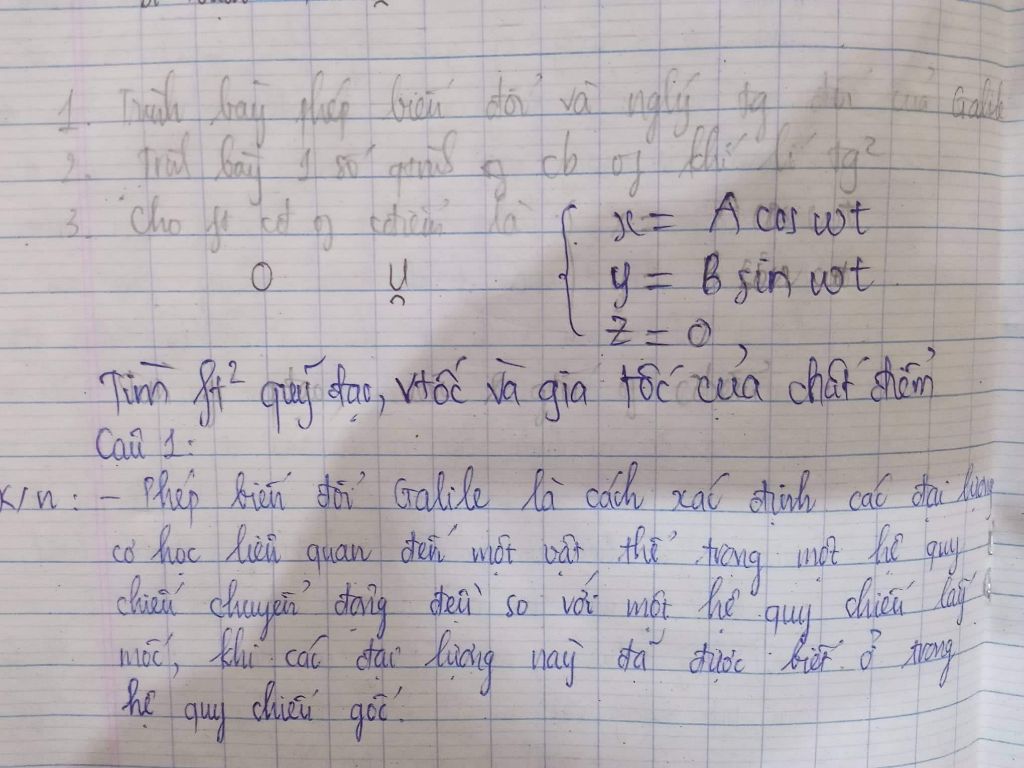 1. Trình bày phép biến đổi và nglý tg đối của Galile
2. Trình bày 1 số cb og khí lí tg²
3. Cho pt cđ là { x = A cos ωt
O U y = B sin ωt
z = 0,
Tìm pt² quỹ đạo, vtốc và gia tốc của chất điểm
Câu 1:
K/n: - Phép biến đổi Galile là cách xác định các đại lượng
cơ học liên quan đến một vật thể trong một hệ quy
chiếu chuyển động đều so với một hệ quy chiếu lấy
mốc, khi các đại lượng này đã được biết ở trong
hệ quy chiếu gốc.